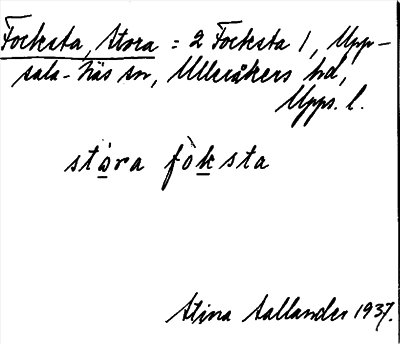 Focksta, Stora = 2 Focksta 1, Upp-
sala-Näs sn, Ulleråkers hd,
Upps. l.
stòra fòksta
Stina Sallander 1937.